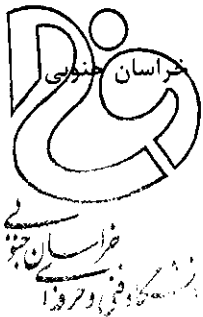 خراسان جنوبی
دانشگاه فنی و حرفه ای
خراسان جنوبی